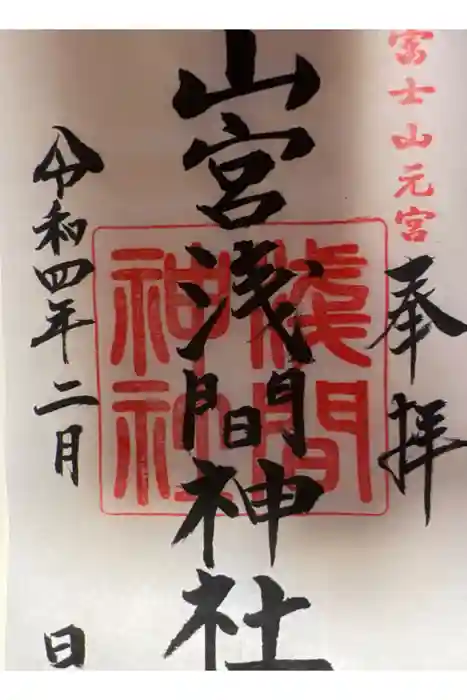 富士山元宮
奉拝
山宮浅間神社
淺間神社
令和四年二月 日